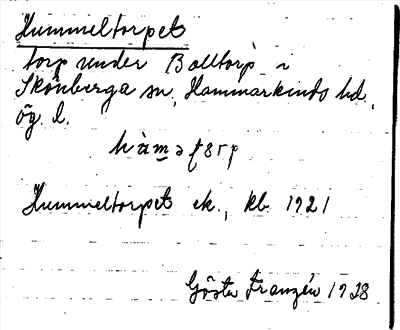 Hummeltorpet
torp under Bolltorp i
Skönberga sn, Hammarkinds hd,
Ög. l.
Hummeltorpet ek., kb 1921
Gösta Franzén 1928